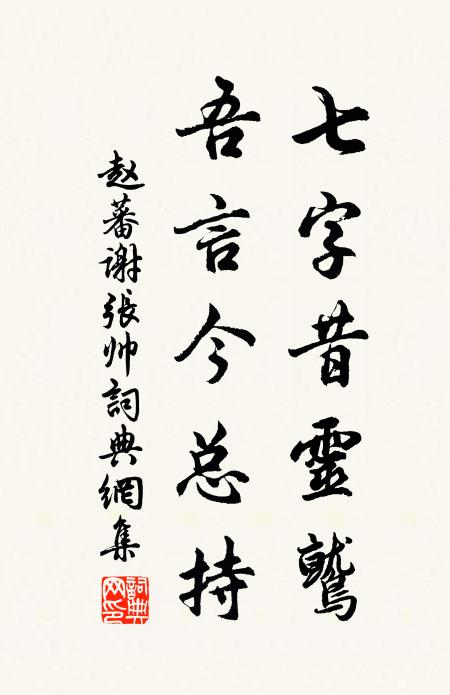 七字昔靈鷲
吾言今总持
赵蕃谢張帅詞典網集
詞典网印